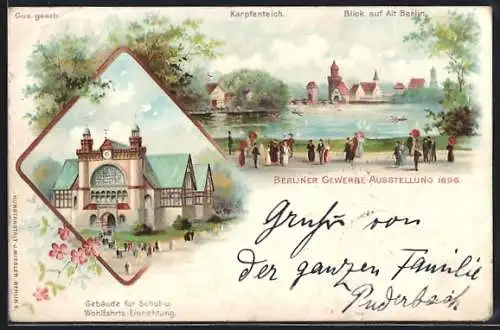 Ges. gesch.
Karpfenteich.
Blick auf Alt Berlin.
BERLINER GEWERBE-AUSSTELLUNG 1896.
Gruß von
der ganzen Familie
Puderbach
Gebäude für Schul-u.
Wohlfahrts-Einrichtung.
KUNSTANSTALT J. MIESLER, BERLIN S.